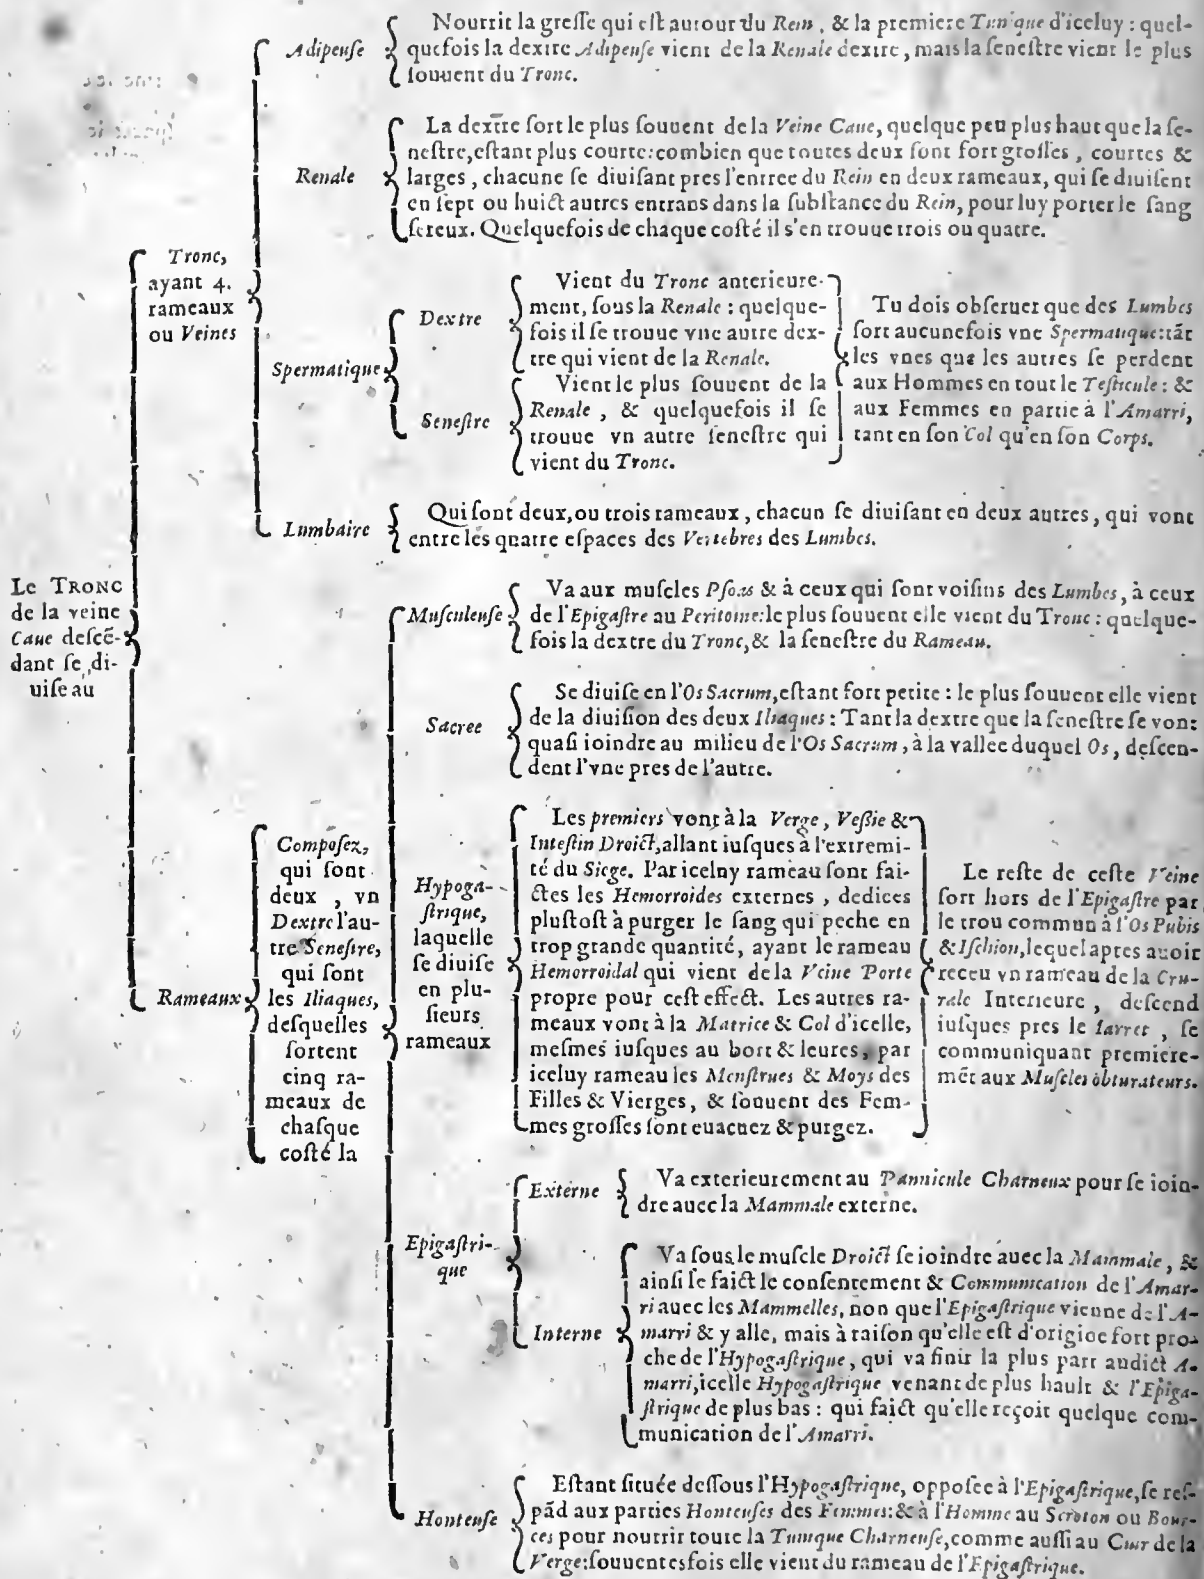 Le TRONC
de la veine
Caue descẽ-
dant se di-
uise au
Tronc,
ayant 4.
rameaux
ou Veines
Adipeuse
Nourrit la gresse qui est autour du Rein, & la premiere Tunique d'iceluy : quel-
quefois la dextre Adipeuse vient de la Renale dextre, mais la senestre vient le plus
souuent du Tronc.
Renale
La dextre sort le plus souuent de la Veine Caue, quelque peu plus haut que la se-
nestre, estant plus courte: combien que toutes deux sont fort grosses, courtes &
larges, chacune se diuisant pres l'entree du Rein en deux rameaux, qui se diuisent
en sept ou huict autres entrans dans la substance du Rein, pour luy porter le sang
sereux. Quelquefois de chaque costé il s'en trouue trois ou quatre.
Spermatique
Dextre
Vient du Tronc anterieure-
ment, sous la Renale : quelque-
fois il se trouue vne autre dex-
tre qui vient de la Renale.
Senestre
Vient le plus souuent de la
Renale, & quelquefois il se
trouue vn autre senestre qui
vient du Tronc.
Tu dois obseruer que des Lumbes
sort aucunefois vne Spermatique: tãt
les vnes que les autres se perdent
aux Hommes en tout le Testicule : &
aux Femmes en partie à l'Amarri,
tant en son Col qu'en son Corps.
Lumbaire
Qui sont deux, ou trois rameaux, chacun se diuisant en deux autres, qui vont
entre les quatre espaces des Vertebres des Lumbes.
Rameaux
Composez,
qui sont
deux, vn
Dextre l'au-
tre Senestre,
qui sont
les Iliaques,
desquelles
sortent
cinq ra-
meaux de
chasque
costé la
Musculeuse
Va aux muscles Psoas & à ceux qui sont voisins des Lumbes, à ceux
de l'Epigastre au Peritoine: le plus souuent elle vient du Tronc : quelque-
fois la dextre du Tronc, & la senestre du Rameau.
Sacree
Se diuise en l'Os Sacrum, estant fort petite : le plus souuent elle vient
de la diuision des deux Iliaques : Tant la dextre que la senestre se vont
quasi ioindre au milieu de l'Os Sacrum, à la vallee duquel Os, descen-
dent l'vne pres de l'autre.
Hypoga-
strique,
laquelle
se diuise
en plu-
sieurs
rameaux
Les premiers vont à la Verge, Vessie &
Intestin Droict, allant iusques à l'extremi-
té du Siege. Par iceluy rameau sont fai-
ctes les Hemorroides externes, dediees
plustost à purger le sang qui peche en
trop grande quantité, ayant le rameau
Hemorroidal qui vient de la Veine Porte
propre pour cest effect. Les autres ra-
meaux vont à la Matrice & Col d'icelle,
mesmes iusques au bort & leures, par
iceluy rameau les Menstrues & Moys des
Filles & Vierges, & souuent des Fem-
mes grosses sont euacuez & purgez.
Le reste de ceste Veine
sort hors de l'Epigastre par
le trou commun à l'Os Pubis
& Ischion, lequel apres auoir
receu vn rameau de la Cru-
rale Interieure, descend
iusques pres le Iarret, se
communiquant premiere-
mẽt aux Muscles obturateurs.
Epigastri-
que
Externe
Va exterieurement au Pannicule Charneux pour se ioin-
dre auec la Mammale externe.
Interne
Va sous le muscle Droict se ioindre auec la Mammale, &
ainsi se faict le consentement & Communication de l'Amar-
ri auec les Mammelles, non que l'Epigastrique vienne de l'A-
marri & y alle, mais à raison qu'elle est d'origine fort pro-
che de l'Hypogastrique, qui va finir la plus part audict A-
marri, icelle Hypogastrique venant de plus hault & l'Epiga-
strique de plus bas : qui faict qu'elle reçoit quelque com-
munication de l'Amarri.
Honteuse
Estant située dessous l'Hypogastrique, opposee à l'Epigastrique, se res-
pãd aux parties Honteuses des Femmes: & à l'Homme au Scroton ou Bour-
ces pour nourrir toute la Tunique Charneuse, comme aussi au Cuir de la
Verge: souuentesfois elle vient du rameau de l'Epigastrique.